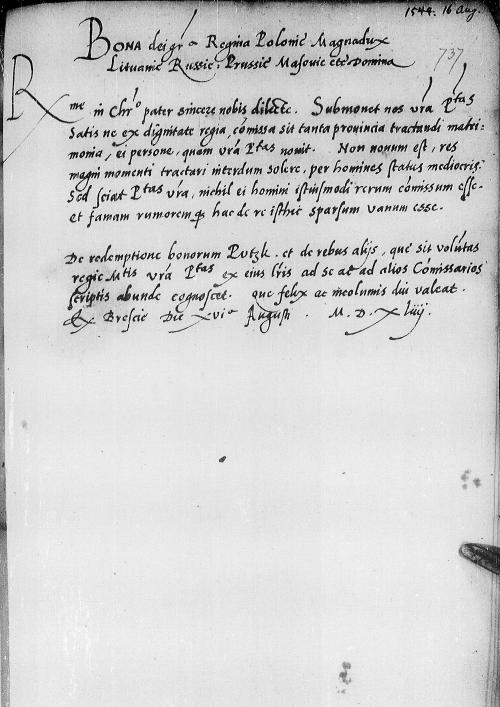 1544. 16 Aug.
737
BONA dei gr̃a Regina Poloniæ Magnadux
Lituaniæ Russiæ: Prussiæ Masoviæ etc Domina
Rme in Chro pater sincere nobis dilecte. Submonet nos vrã Ptas
satis ne ex dignitate regia, cõmissa sit tanta provincia tractandi matri-
monia, ei personæ, quam vrã Ptas novit. Non novum est, res
magni momenti tractari interdum solere, per homines status mediocris.
Sed sciat Ptas vrã, nichil ei homini istiusmodi rerum cõmissum esse.
et famam rumoremq hac de re isthic sparsum vanum esse.
De redemptione bonorum Putzk. et de rebus alijs, quæ sit volũtas
regiæ Mtis vrã Ptas ex eius lris ad se ac ad alios Cõmissarios
scriptis abunde cognoscet. que felix ac incolumis diu valeat.
Ex Brescie Die xvia Augusti. M.D.XLiiij.